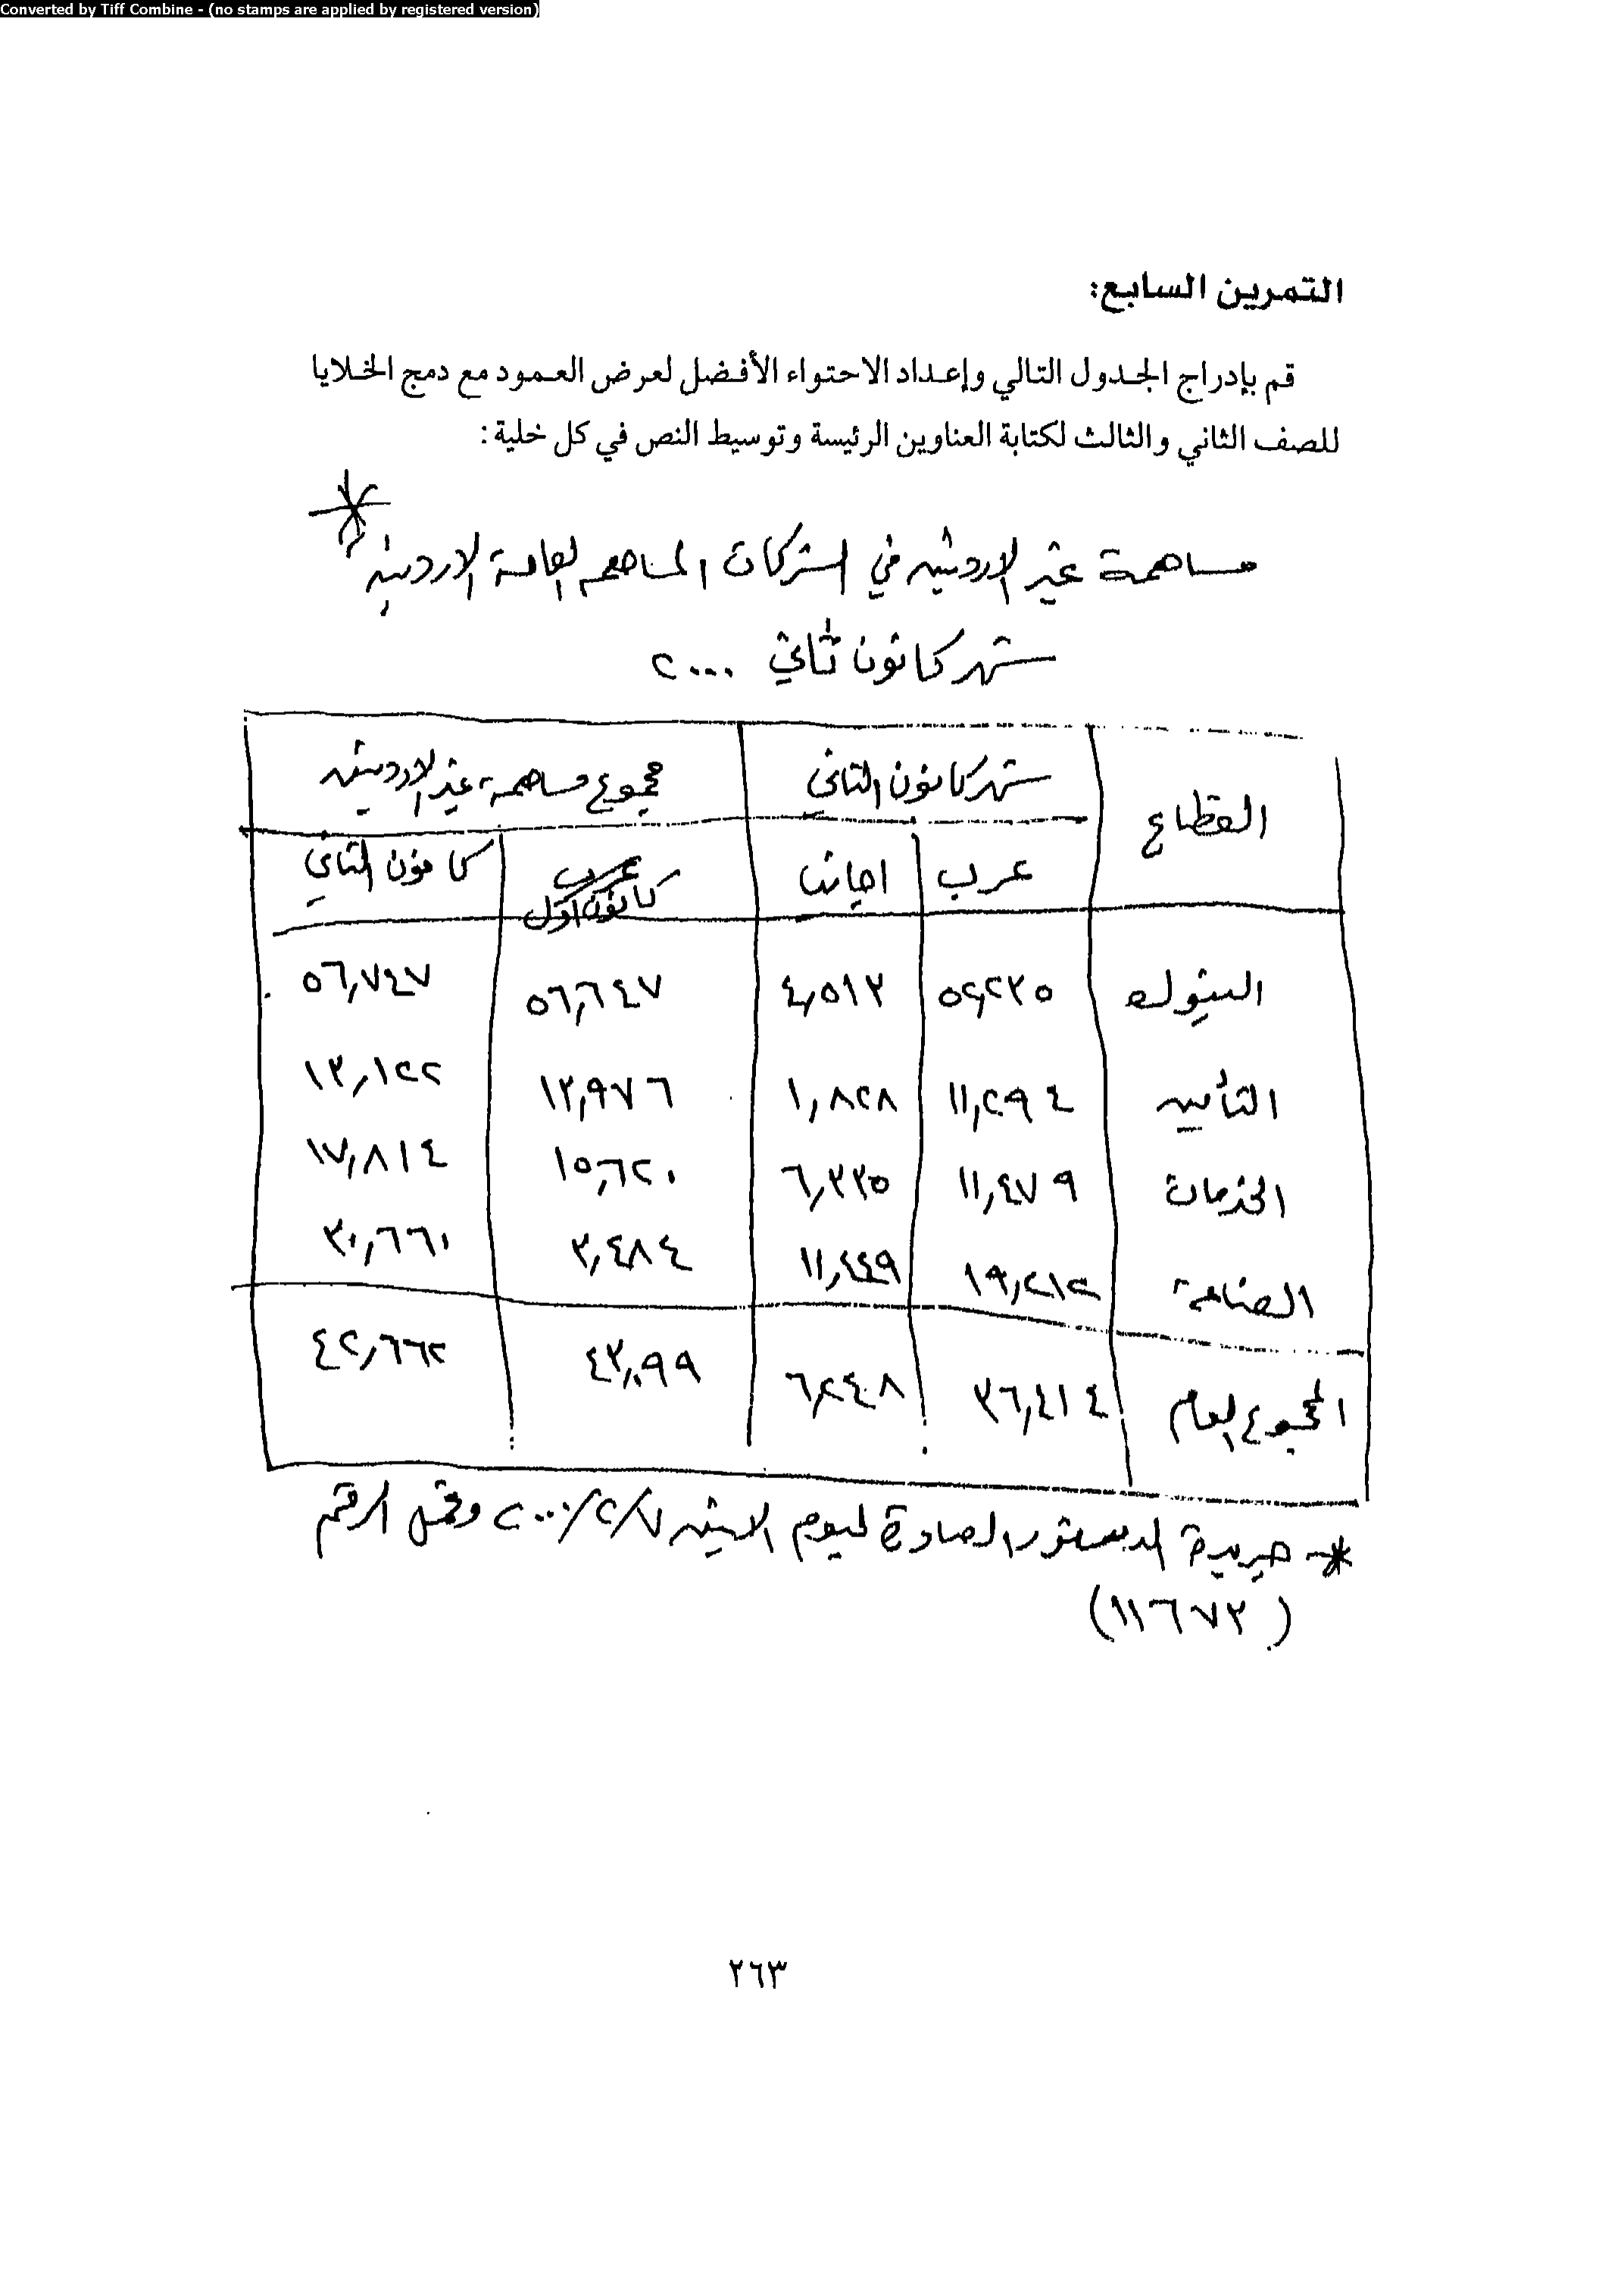 Converted by Tiff Combine - (no stamps are applied by registered version)
التمرين السابع:
قم بإدراج الجدول التالي وإعداد الاحتواء الأفضل لعرض العمود مع دمج الخلايا
للصف الثاني والثالث لكتابة العناوين الرئيسة وتوسيط النص في كل خلية:
مساهمة غير الاردنيين في الشركات المساهمة العامة الاردنية *
شهر كانون ثاني ٢٠٠٠
القطاع شهر كانون الثاني مجموع مساهمة غير الاردنيين
عرب اجانب كانون اول كانون الثاني
البنوك ٥٢,٢٣٥ ٤,٥١٣ ٥٦,٦٤٧ ٥٦,٧٤٧
التأمين ١١,٢٩٤ ١,٨٢٨ ١٢,٩٧٦ ١٣,١٢٢
الخدمات ١١,٤٧٩ ٦,٣٣٥ ١٥,٦٢٠ ١٧,٨١٤
الصناعة ١٩,٢١٢ ١١,٤٤٩ ٣,٤٨٤ ٣٠,٦٦٠
المجموع العام ٣٦,٤١٤ ٦,٢٤٨ ٤٣,٠٩٩ ٤٢,٦٦٢
* جريدة الدستور الصادرة ليوم الاثنين ٢٠٠٠/٢/٧ وتحمل الرقم
(١١٦٧٣)
٢٦٣